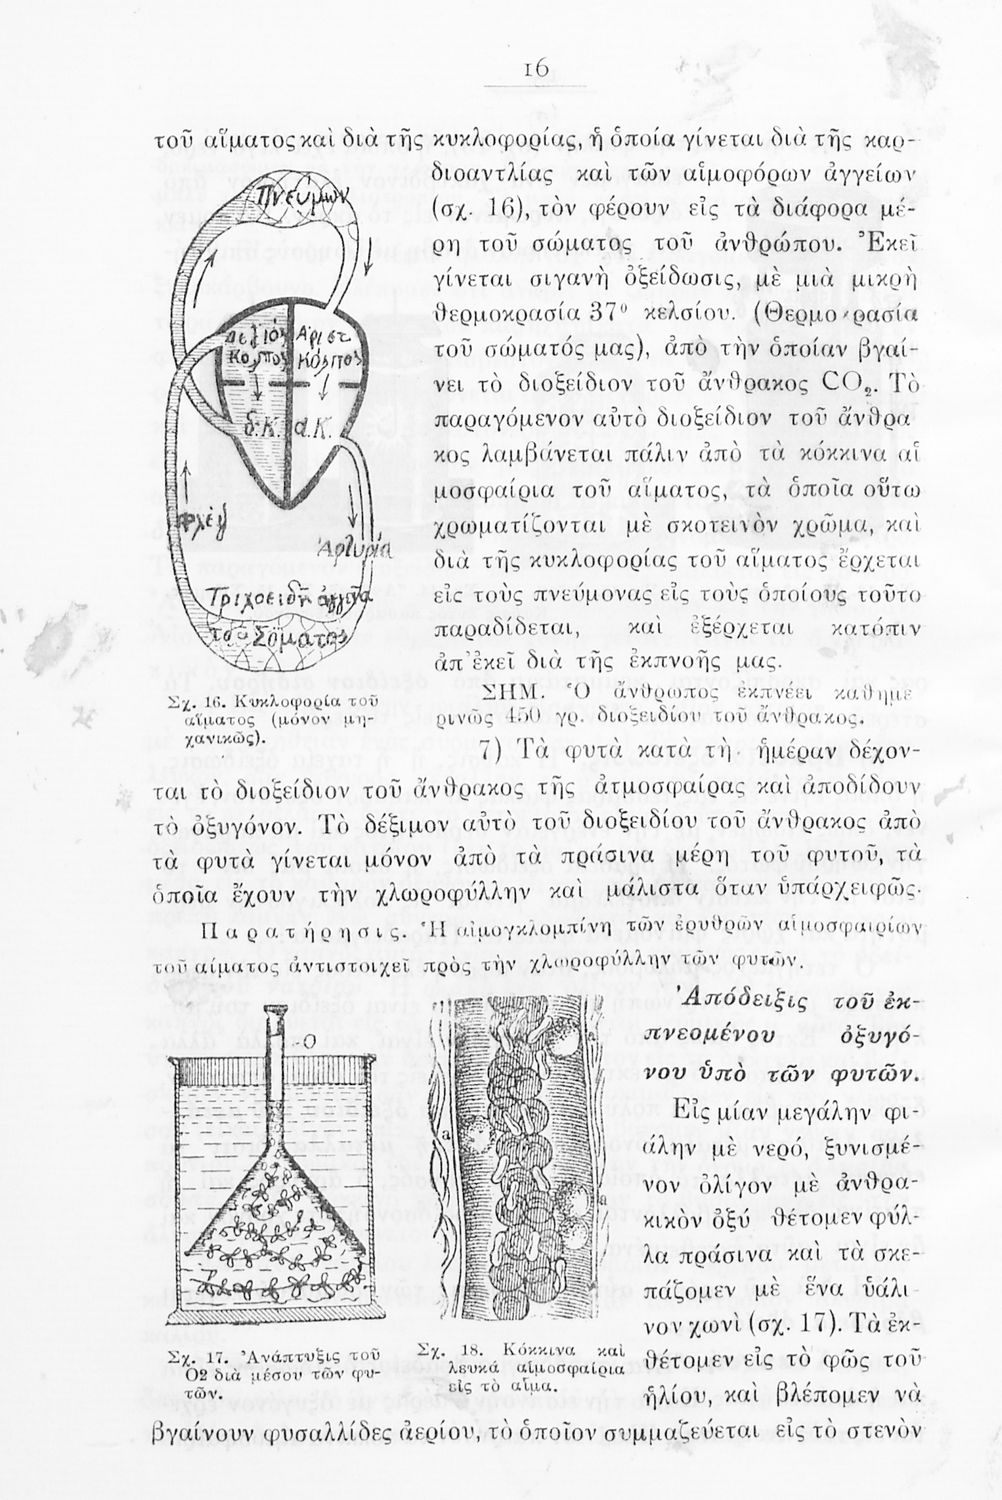 16
τοῦ αἵματος καὶ διὰ τῆς κυκλοφορίας, ἡ ὁποία γίνεται διὰ τῆς καρ-
διοαντλίας καὶ τῶν αἱμοφόρων ἀγγείων
(σχ. 16), τὸν φέρουν εἰς τὰ διάφορα μέ-
ρη τοῦ σώματος τοῦ ἀνθρώπου. Ἐκεῖ
γίνεται σιγανὴ ὀξείδωσις, μὲ μιὰ μικρὴ
θερμοκρασία 37° κελσίου. (Θερμο ρασία
τοῦ σώματός μας), ἀπὸ τὴν ὁποίαν βγαί-
νει τὸ διοξείδιον τοῦ ἄνθρακος CO₂. Τὸ
παραγόμενον αὐτὸ διοξείδιον τοῦ ἄνθρα
κος λαμβάνεται πάλιν ἀπὸ τὰ κόκκινα αἱ
μοσφαίρια τοῦ αἵματος, τὰ ὁποῖα οὕτω
χρωματίζονται μὲ σκοτεινὸν χρῶμα, καὶ
διὰ τῆς κυκλοφορίας τοῦ αἵματος ἔρχεται
εἰς τοὺς πνεύμονας εἰς τοὺς ὁποίους τοῦτο
παραδίδεται, καὶ ἐξέρχεται κατόπιν
ἀπ' ἐκεῖ διὰ τῆς ἐκπνοῆς μας.
Πνεύμων
Δεξιός Κόλπος
Ἀριστ Κόλπος
δ.Κ. ἀ.Κ.
φλέψ
Ἀρτυρία
Τριχοειδῆ ἀγγεῖα
τοῦ Σώματος
Σχ. 16. Κυκλοφορία τοῦ
αἵματος (μόνον μη-
χανικῶς).
ΣΗΜ. Ὁ ἄνθρωπος ἐκπνέει καθημε
ρινῶς 450 γρ. διοξειδίου τοῦ ἄνθρακος.
7) Τὰ φυτὰ κατὰ τὴ· ἡμέραν δέχον-
ται τὸ διοξείδιον τοῦ ἄνθρακος τῆς ἀτμοσφαίρας καὶ ἀποδίδουν
τὸ ὀξυγόνον. Τὸ δέξιμον αὐτὸ τοῦ διοξειδίου τοῦ ἄνθρακος ἀπὸ
τὰ φυτὰ γίνεται μόνον ἀπὸ τὰ πράσινα μέρη τοῦ φυτοῦ, τὰ
ὁποῖα ἔχουν τὴν χλωροφύλλην καὶ μάλιστα ὅταν ὑπάρχει φῶς.
Παρατήρησις. Ἡ αἱμογκλομπίνη τῶν ἐρυθρῶν αἱμοσφαιρίων
τοῦ αἵματος ἀντιστοιχεῖ πρὸς τὴν χλωροφύλλην τῶν φυτῶν.
O
a
a
a
Σχ. 17. Ἀνάπτυξις τοῦ
O2 διὰ μέσου τῶν φυ-
τῶν.
Σχ. 18. Κόκκινα καὶ
λευκά αἱμοσφαίρια
εἰς τὸ αἷμα.
Ἀπόδειξις τοῦ ἐκ-
πνεομένου ὀξυγό-
νου ὑπὸ τῶν φυτῶν.
Εἰς μίαν μεγάλην φι-
άλην μὲ νερό, ξυνισμέ-
νον ὀλίγον μὲ ἀνθρα-
κικὸν ὀξύ θέτομεν φύλ-
λα πράσινα καὶ τὰ σκε-
πάζομεν μὲ ἕνα ὑάλι
νον χωνὶ (σχ. 17). Τὰ ἐκ-
θέτομεν εἰς τὸ φῶς τοῦ
ἡλίου, καὶ βλέπομεν νὰ
βγαίνουν φυσαλλίδες ἀερίου, τὸ ὁποῖον συμμαζεύεται εἰς τὸ στενὸν